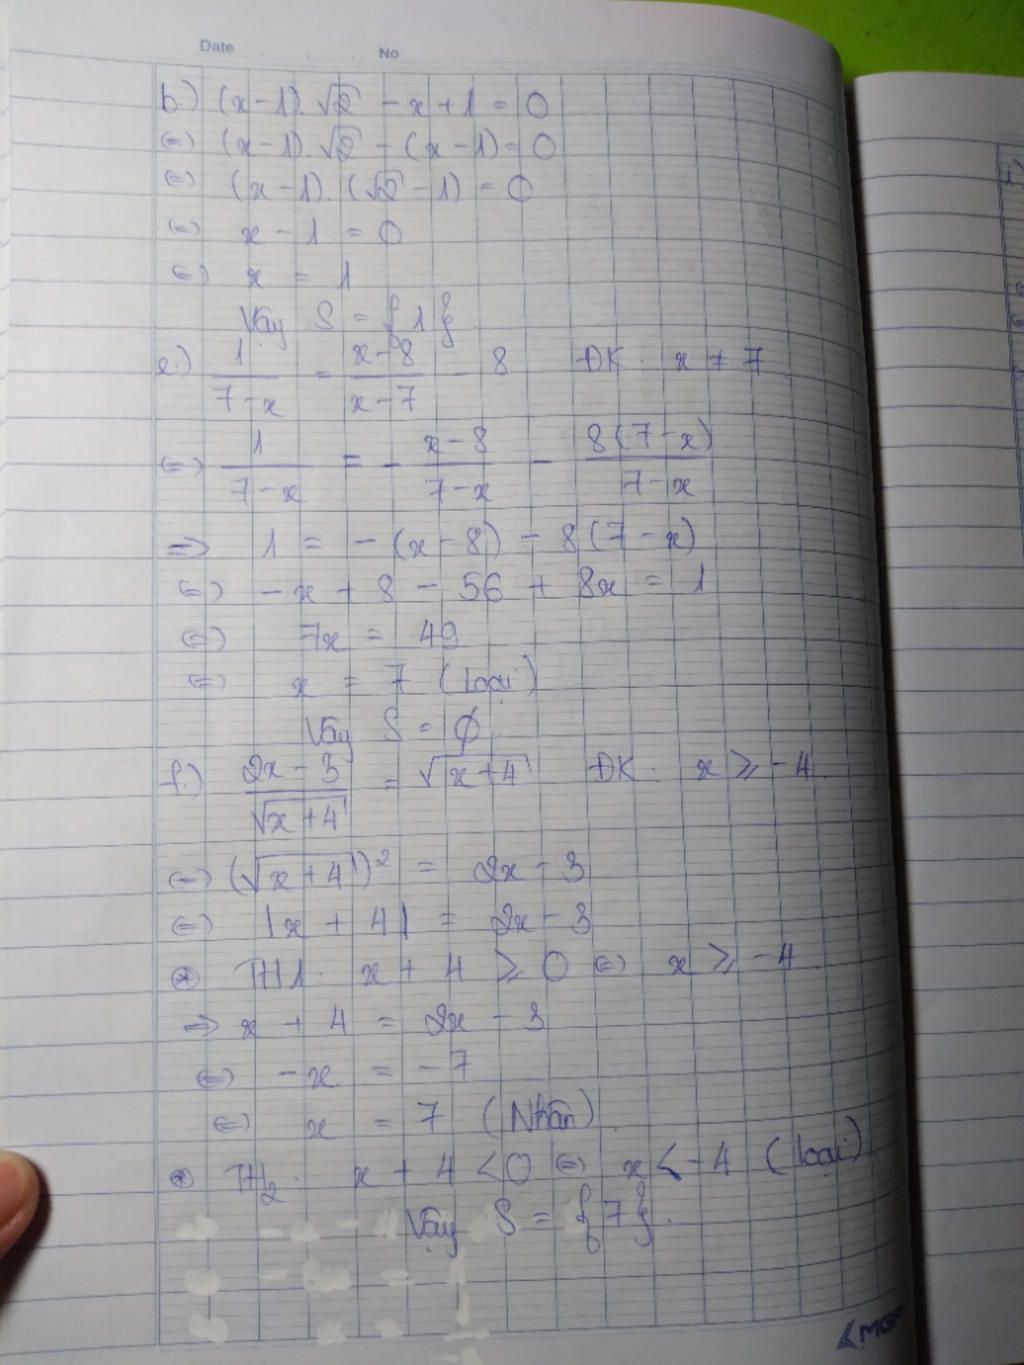 Date No
b.) (x-1).√2 - x+1 = 0
(=) (x-1).√2 - (x-1) = 0
(=) (x-1).(√2 - 1) = 0
(=) x - 1 = 0
(=) x = 1
Vậy S = {1}
e.) 1/(7-x) = (x-8)/(x-7) - 8 ĐK: x ≠ 7
(=) 1/(7-x) = - (x-8)/(7-x) - 8(7-x)/(7-x)
=> 1 = -(x-8) - 8(7-x)
(=) -x + 8 - 56 + 8x = 1
(=) 7x = 49
(=) x = 7 (loại)
Vậy S = ∅
f.) (2x-3)/√(x+4) = √(x+4) ĐK: x ≥ -4
(=) (√(x+4))² = 2x - 3
(=) |x+4| = 2x-3
⊛ TH1: x+4 ≥ 0 (=) x ≥ -4
=> x + 4 = 2x - 3
(=) -x = -7
(=) x = 7 (Nhận)
⊛ TH2: x+4 < 0 (=) x < -4 (loại)
Vậy S = {7}.